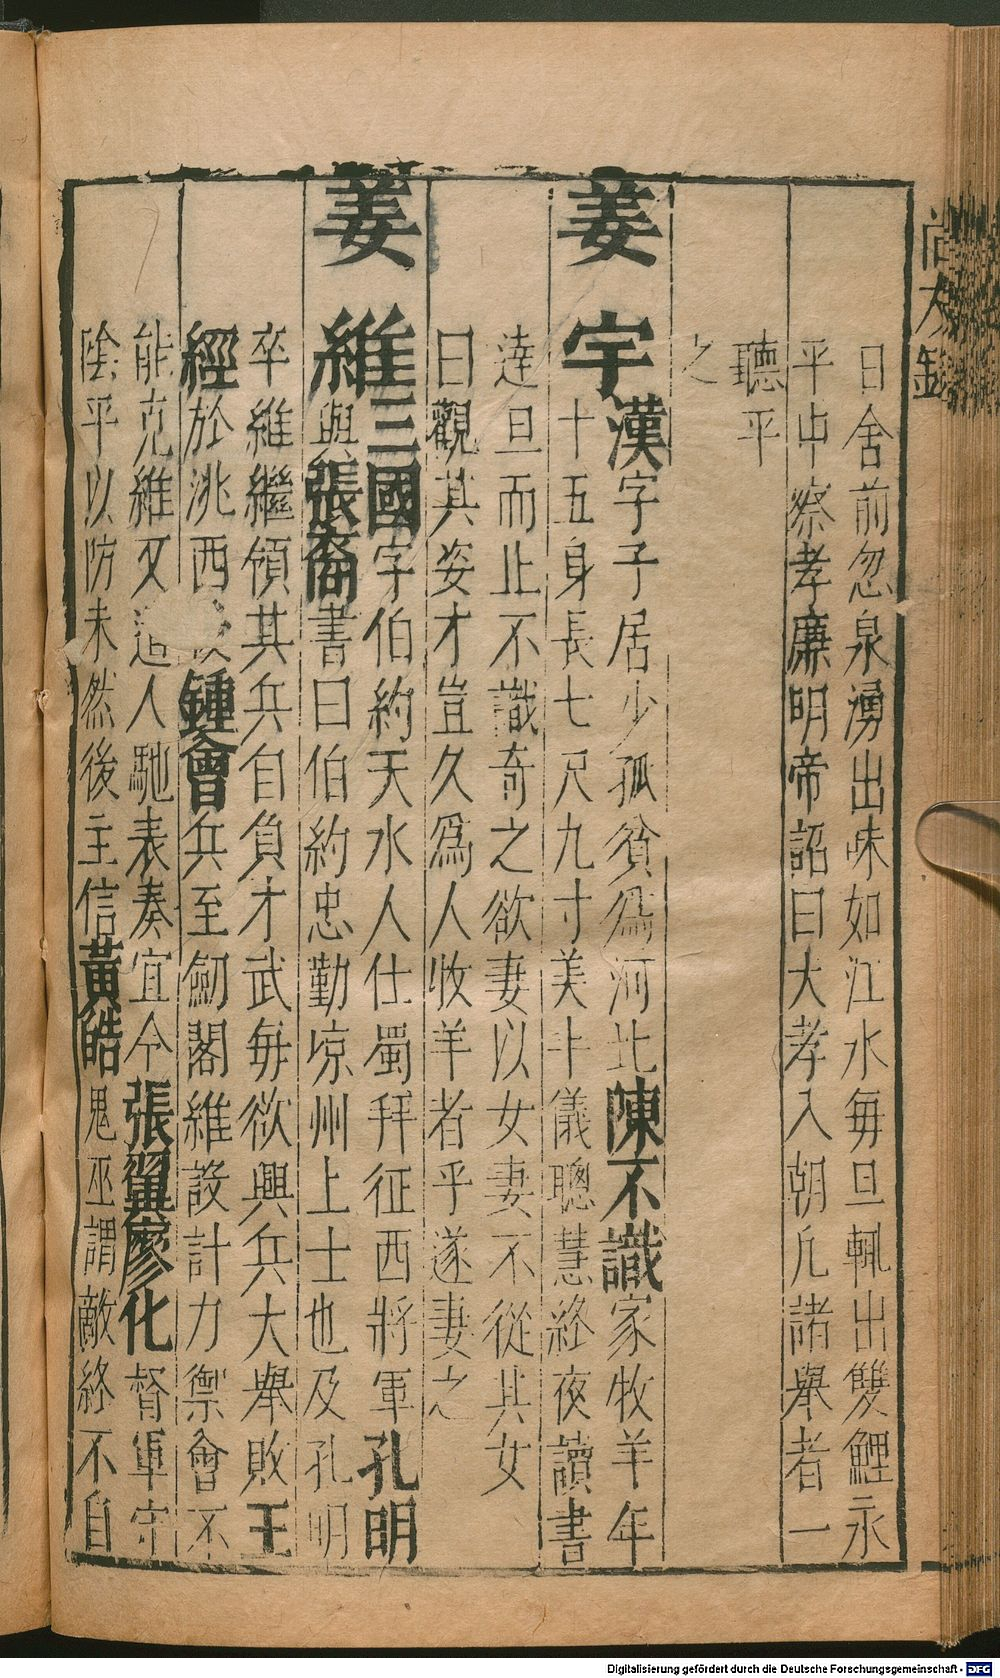 日舍前忽泉湧出味如江水毎旦輒出雙鯉永
平中察孝廉明帝詔曰大孝入朝凡諸舉者一
聽平
之
姜宇漢字子居少孤貧爲河北陳不識家牧羊年
十五身長七尺九寸美丰儀聰慧終夜讀書
達旦而止不識奇之欲妻以女妻不從其女
曰觀其姿才豈久爲人收羊者乎遂妻之
姜維三國字伯約天水人仕蜀拜征西將軍孔明
與張裔書曰伯約忠勤凉州上士也及孔明
卒維繼領其兵自負才武毎欲興兵大舉敗王
經於洮西鍾會兵至劒閣維設計力禦會不
能克維又遣人馳表奏宜令張翼廖化督軍守
陰平以防未然後主信黃皓鬼巫謂敵終不自
Digitalisierung gefördert durch die Deutsche Forschungsgemeinschaft - DFG